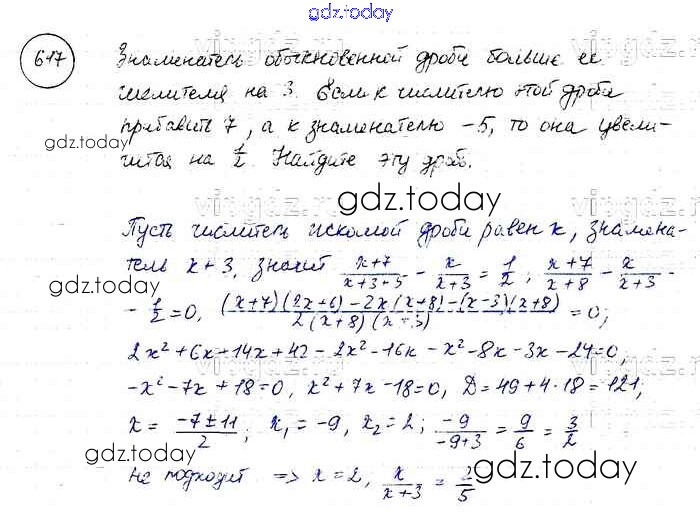 gdz.today
617 Знаменатель обыкновенной дроби больше ее
числителя на 3. Если к числителю этой дроби
gdz.today
прибавить 7, а к знаменателю – 5, то она увели-
чится на 1/2. Найдите эту дробь.
gdz.today
Пусть числитель искомой дроби равен x, знамена-
тель x+3, значит (x+7)/(x+3+5) - x/(x+3) = 1/2; (x+7)/(x+8) - x/(x+3) -
gdz.today
- 1/2 = 0, ((x+7)(2x+6)-2x(x+8)-(x-3)(x+8))/(2(x+8)(x+3)) = 0;
2x²+6x+14x+42-2x²-16x-x²-8x-3x-24=0,
-x²-7x+18=0, x²+7x-18=0, D=49+4·18=121;
x = (-7±11)/2; x₁=-9, x₂=2; -9/(-9+3) = 9/6 = 3/2
gdz.today
gdz.today
не подходит => x=2, x/(x+3) = 2/5